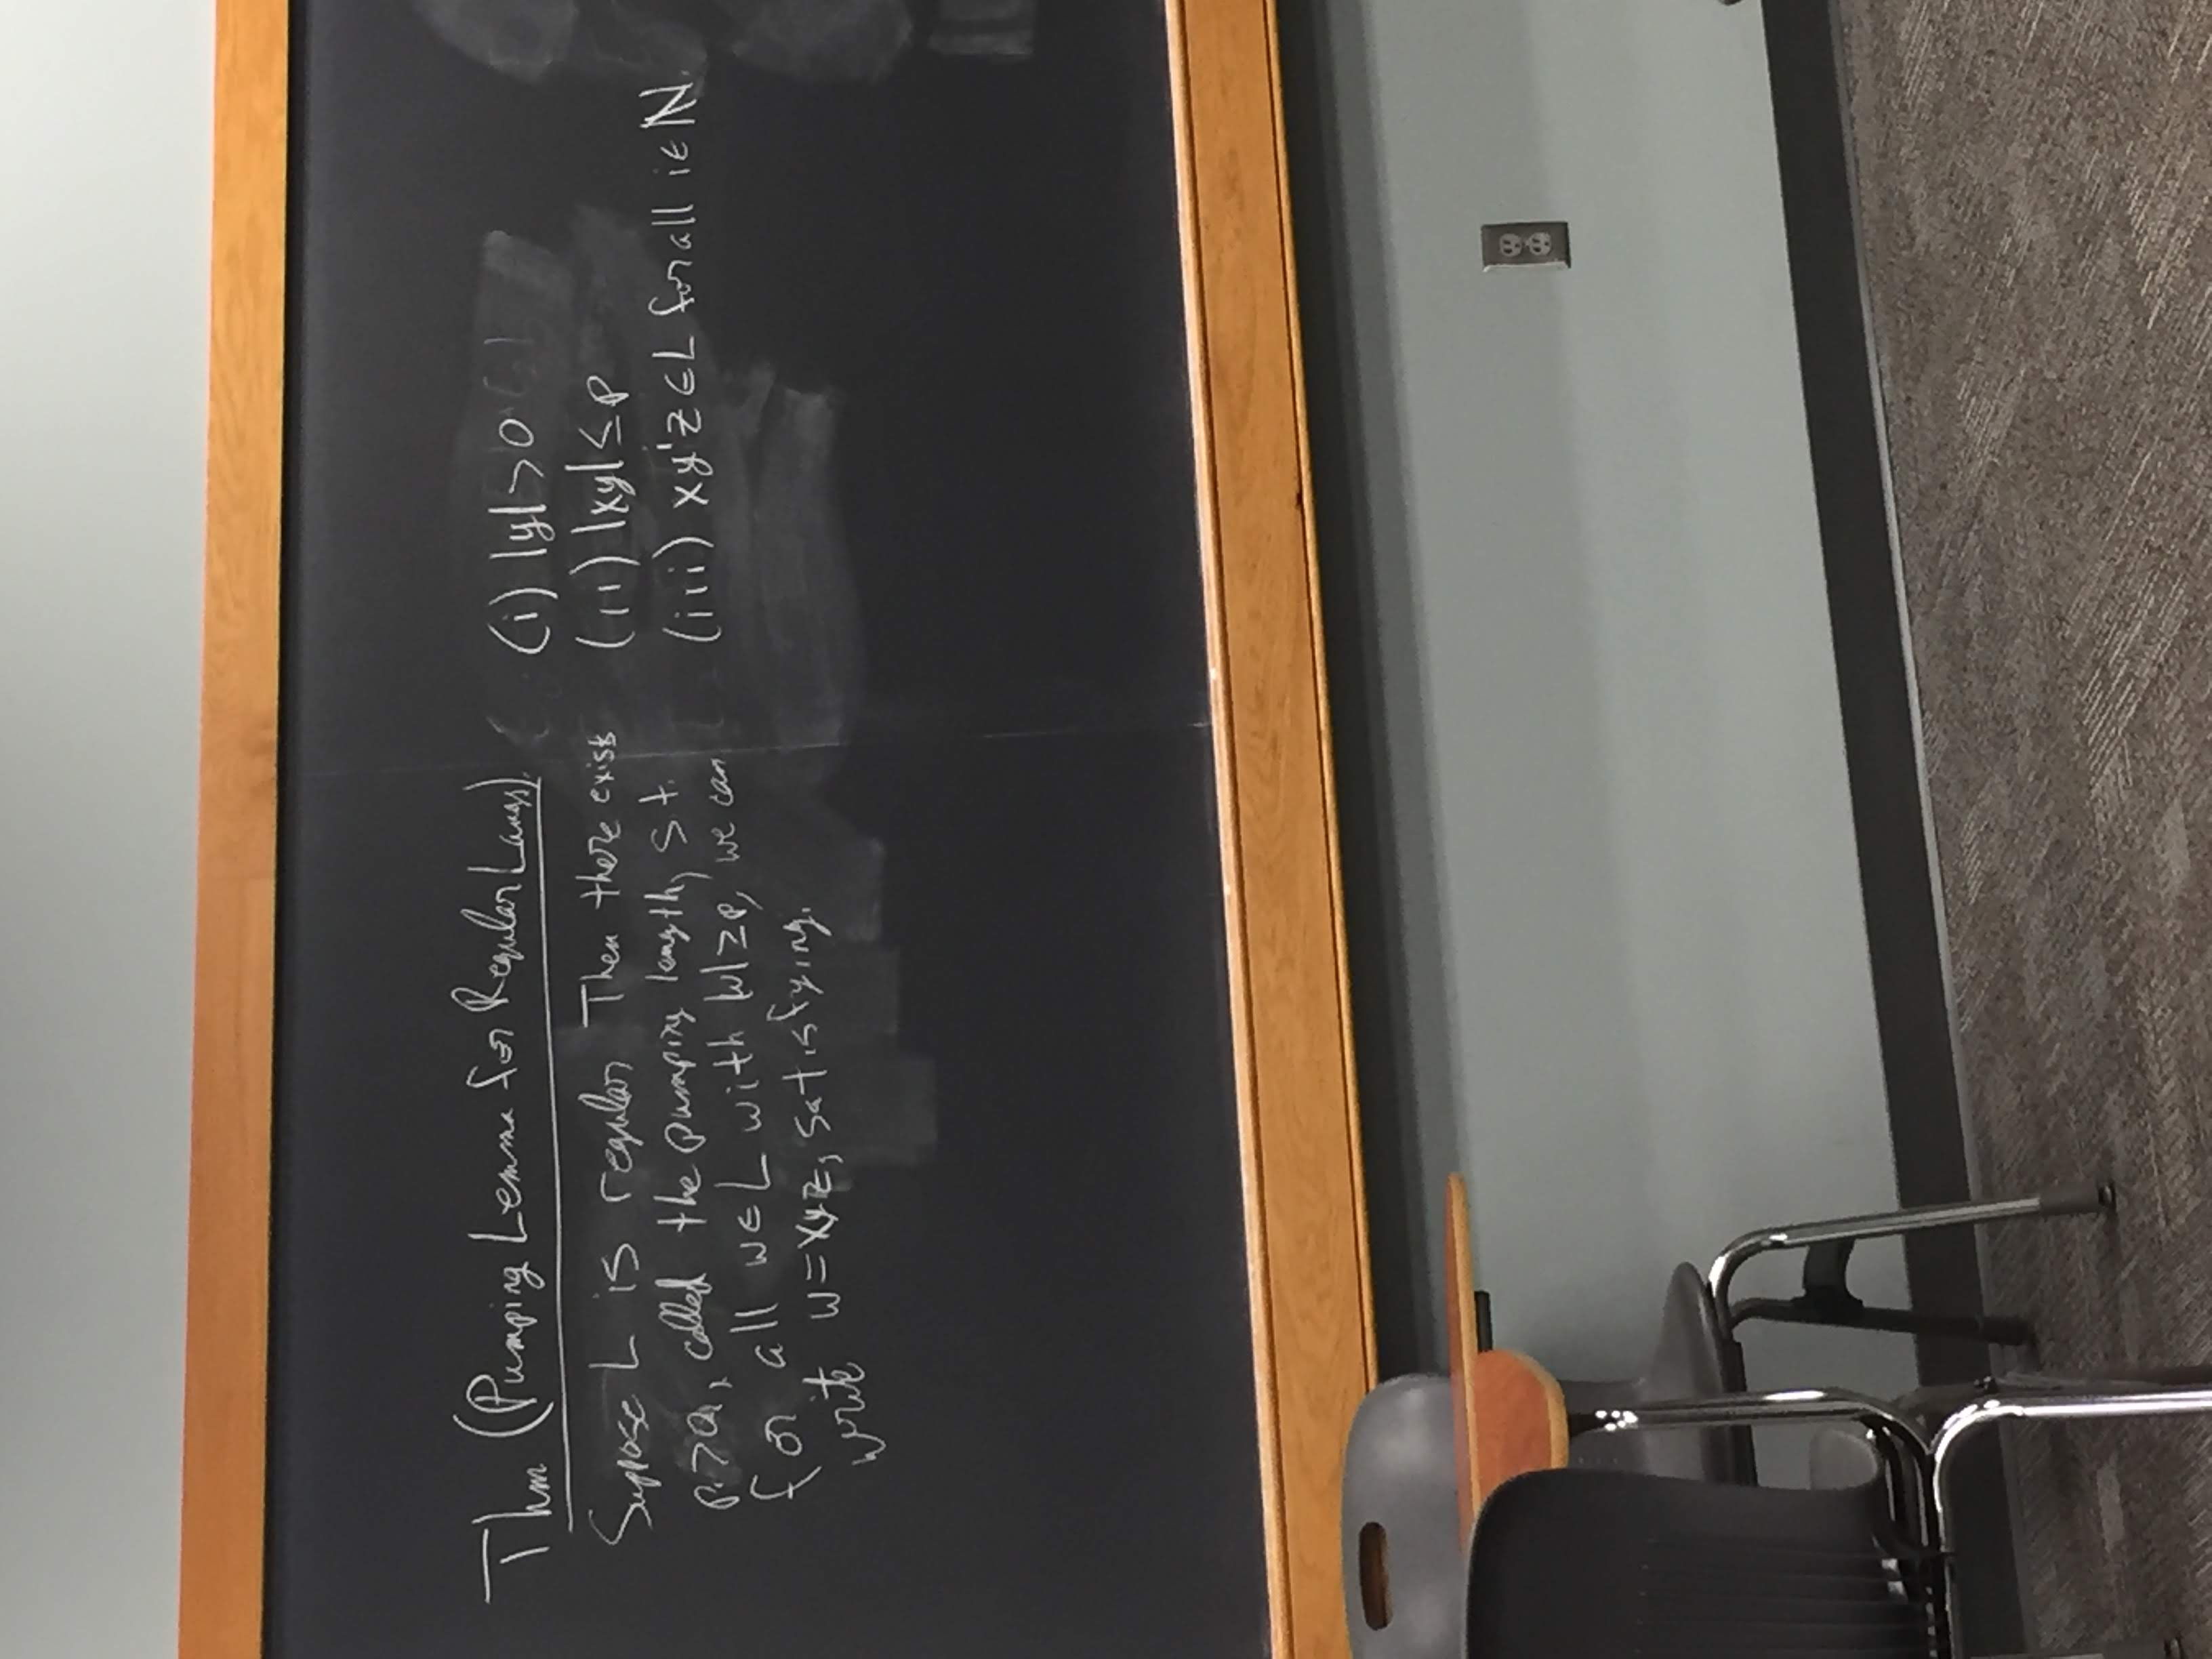 Thm (Pumping Lemma for Regular Langs).
Suppose L is regular Then there exists
p>0, called the pumping length, s.t.
for all w∈L with |w|≥p, we can
write w=xyz, satisfying.
(i) |y|>0
(ii) |xy|≤p
(iii) xyⁱz∈L for all i∈ℕ.